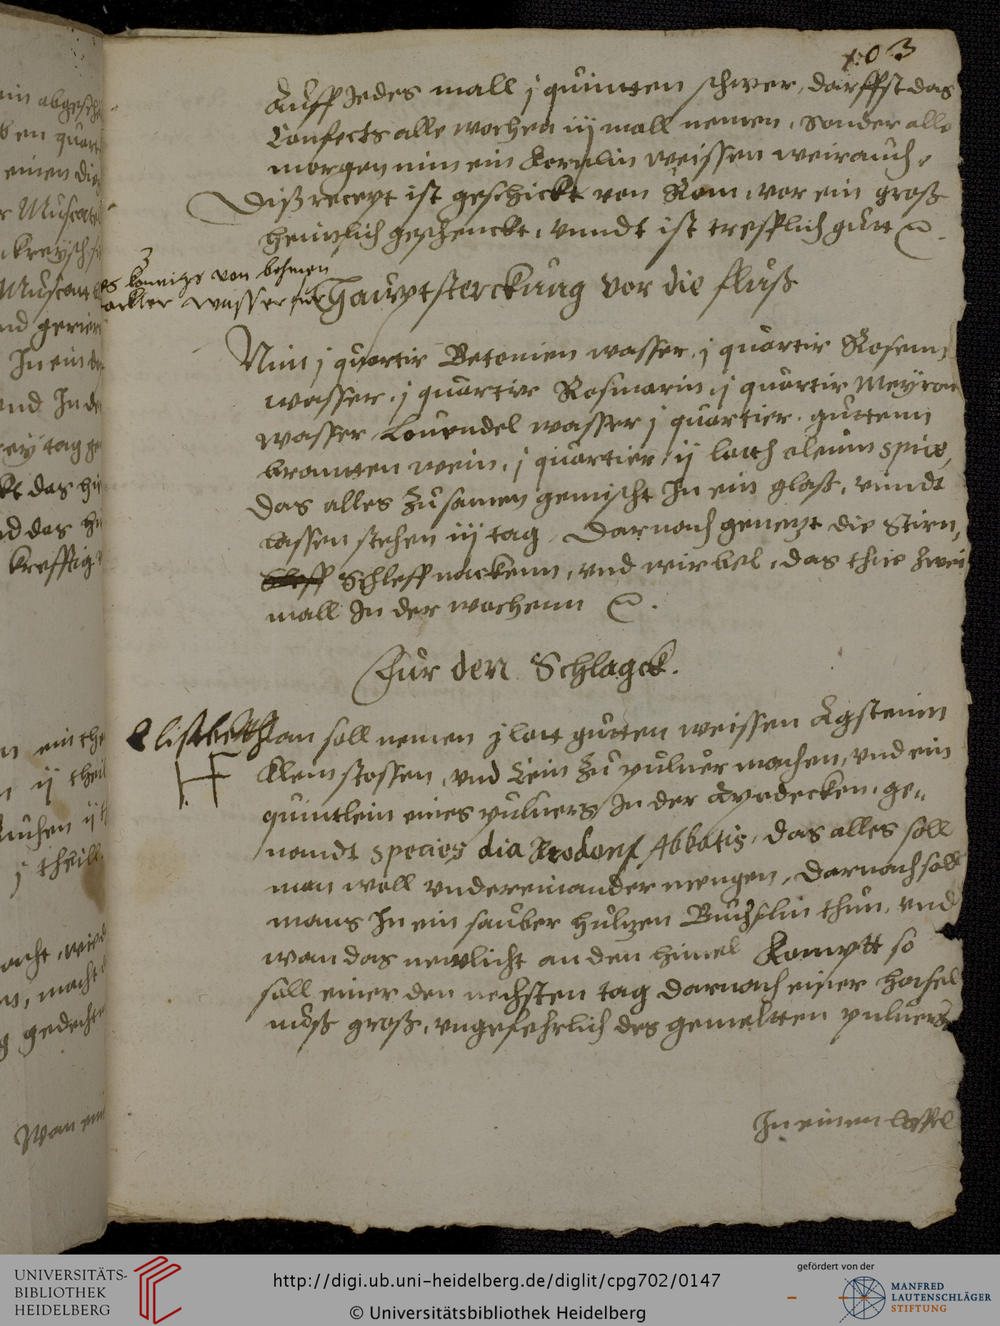 103
Auff Jedes mall j quinten schwer, darffst das
Confects alle wochen iij mall nemen, sonder alle
morgen nim ein kornlin weissen weirauch,
Diß recept ist geschickt von Rom, vor ein groß
heimlich geschenckt, vnndt ist trefflich gutt
konigs von behmen
wasser für
Hauptsterckung vor die fluß
Nim j quartir Betonien wasser, j quartir Rosenn
wasser, j quartir Rosmarin, j quartir Meyron
wasser, Lauendel wasser j quartier, guttenn
branntten wein, j quartier, ij loth oleum spice,
das alles zusamen gemischt In ein glaß, vnndt
lassen stehen iij tag, Darnach genetzt die Stirn,
Schleff nackenn, vnd wirbel, das thue zwei
mall In der wochenn
Fur den Schlagck.
Man soll nemen j lott gutten weissen Agsteinn
klein stossen, vnd klein zu puluer machen, vnd ein
quintlein eines puluers In der Apodecken, ge„
nandt species dia Abbatis, das alles soll
man woll vndereinander mengen, Darnach soll
mans In ein sauber hultzen Buchslin thun, vnd
wan das newlicht an den himel kompt so
soll einer den nechsten tag darnach einer hasel
nuß groß, vngefehrlich des gemeltten puluers
In einen Leffel
UNIVERSITÄTS-
BIBLIOTHEK
HEIDELBERG
http://digi.ub.uni-heidelberg.de/diglit/cpg702/0147
© Universitätsbibliothek Heidelberg
gefördert von der
MANFRED
LAUTENSCHLÄGER
STIFTUNG